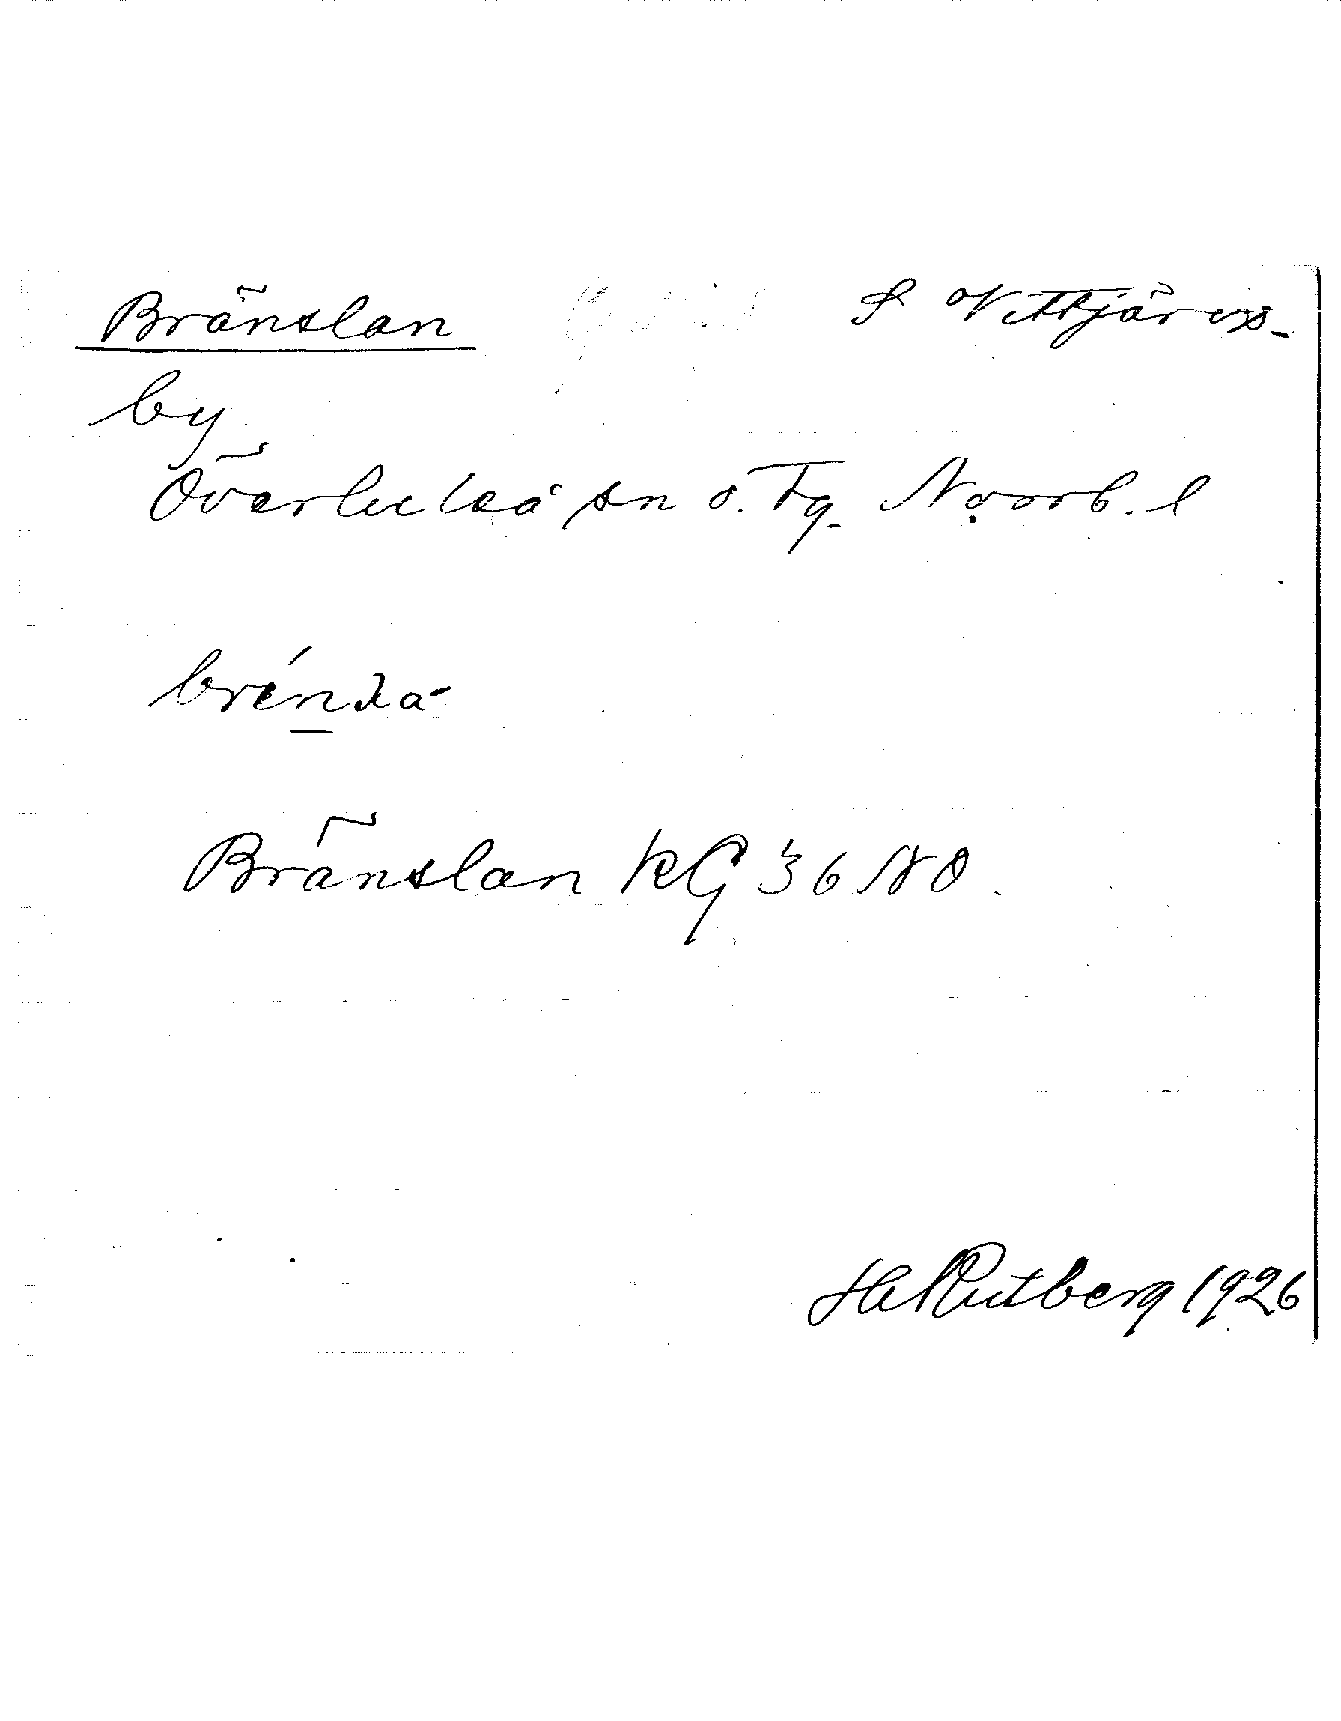 Bränslan S Vittjärvs-
by
Överluleå sn o. tg. Norrb. l
Bränslan KG 36 NO.
H Rutberg 1926